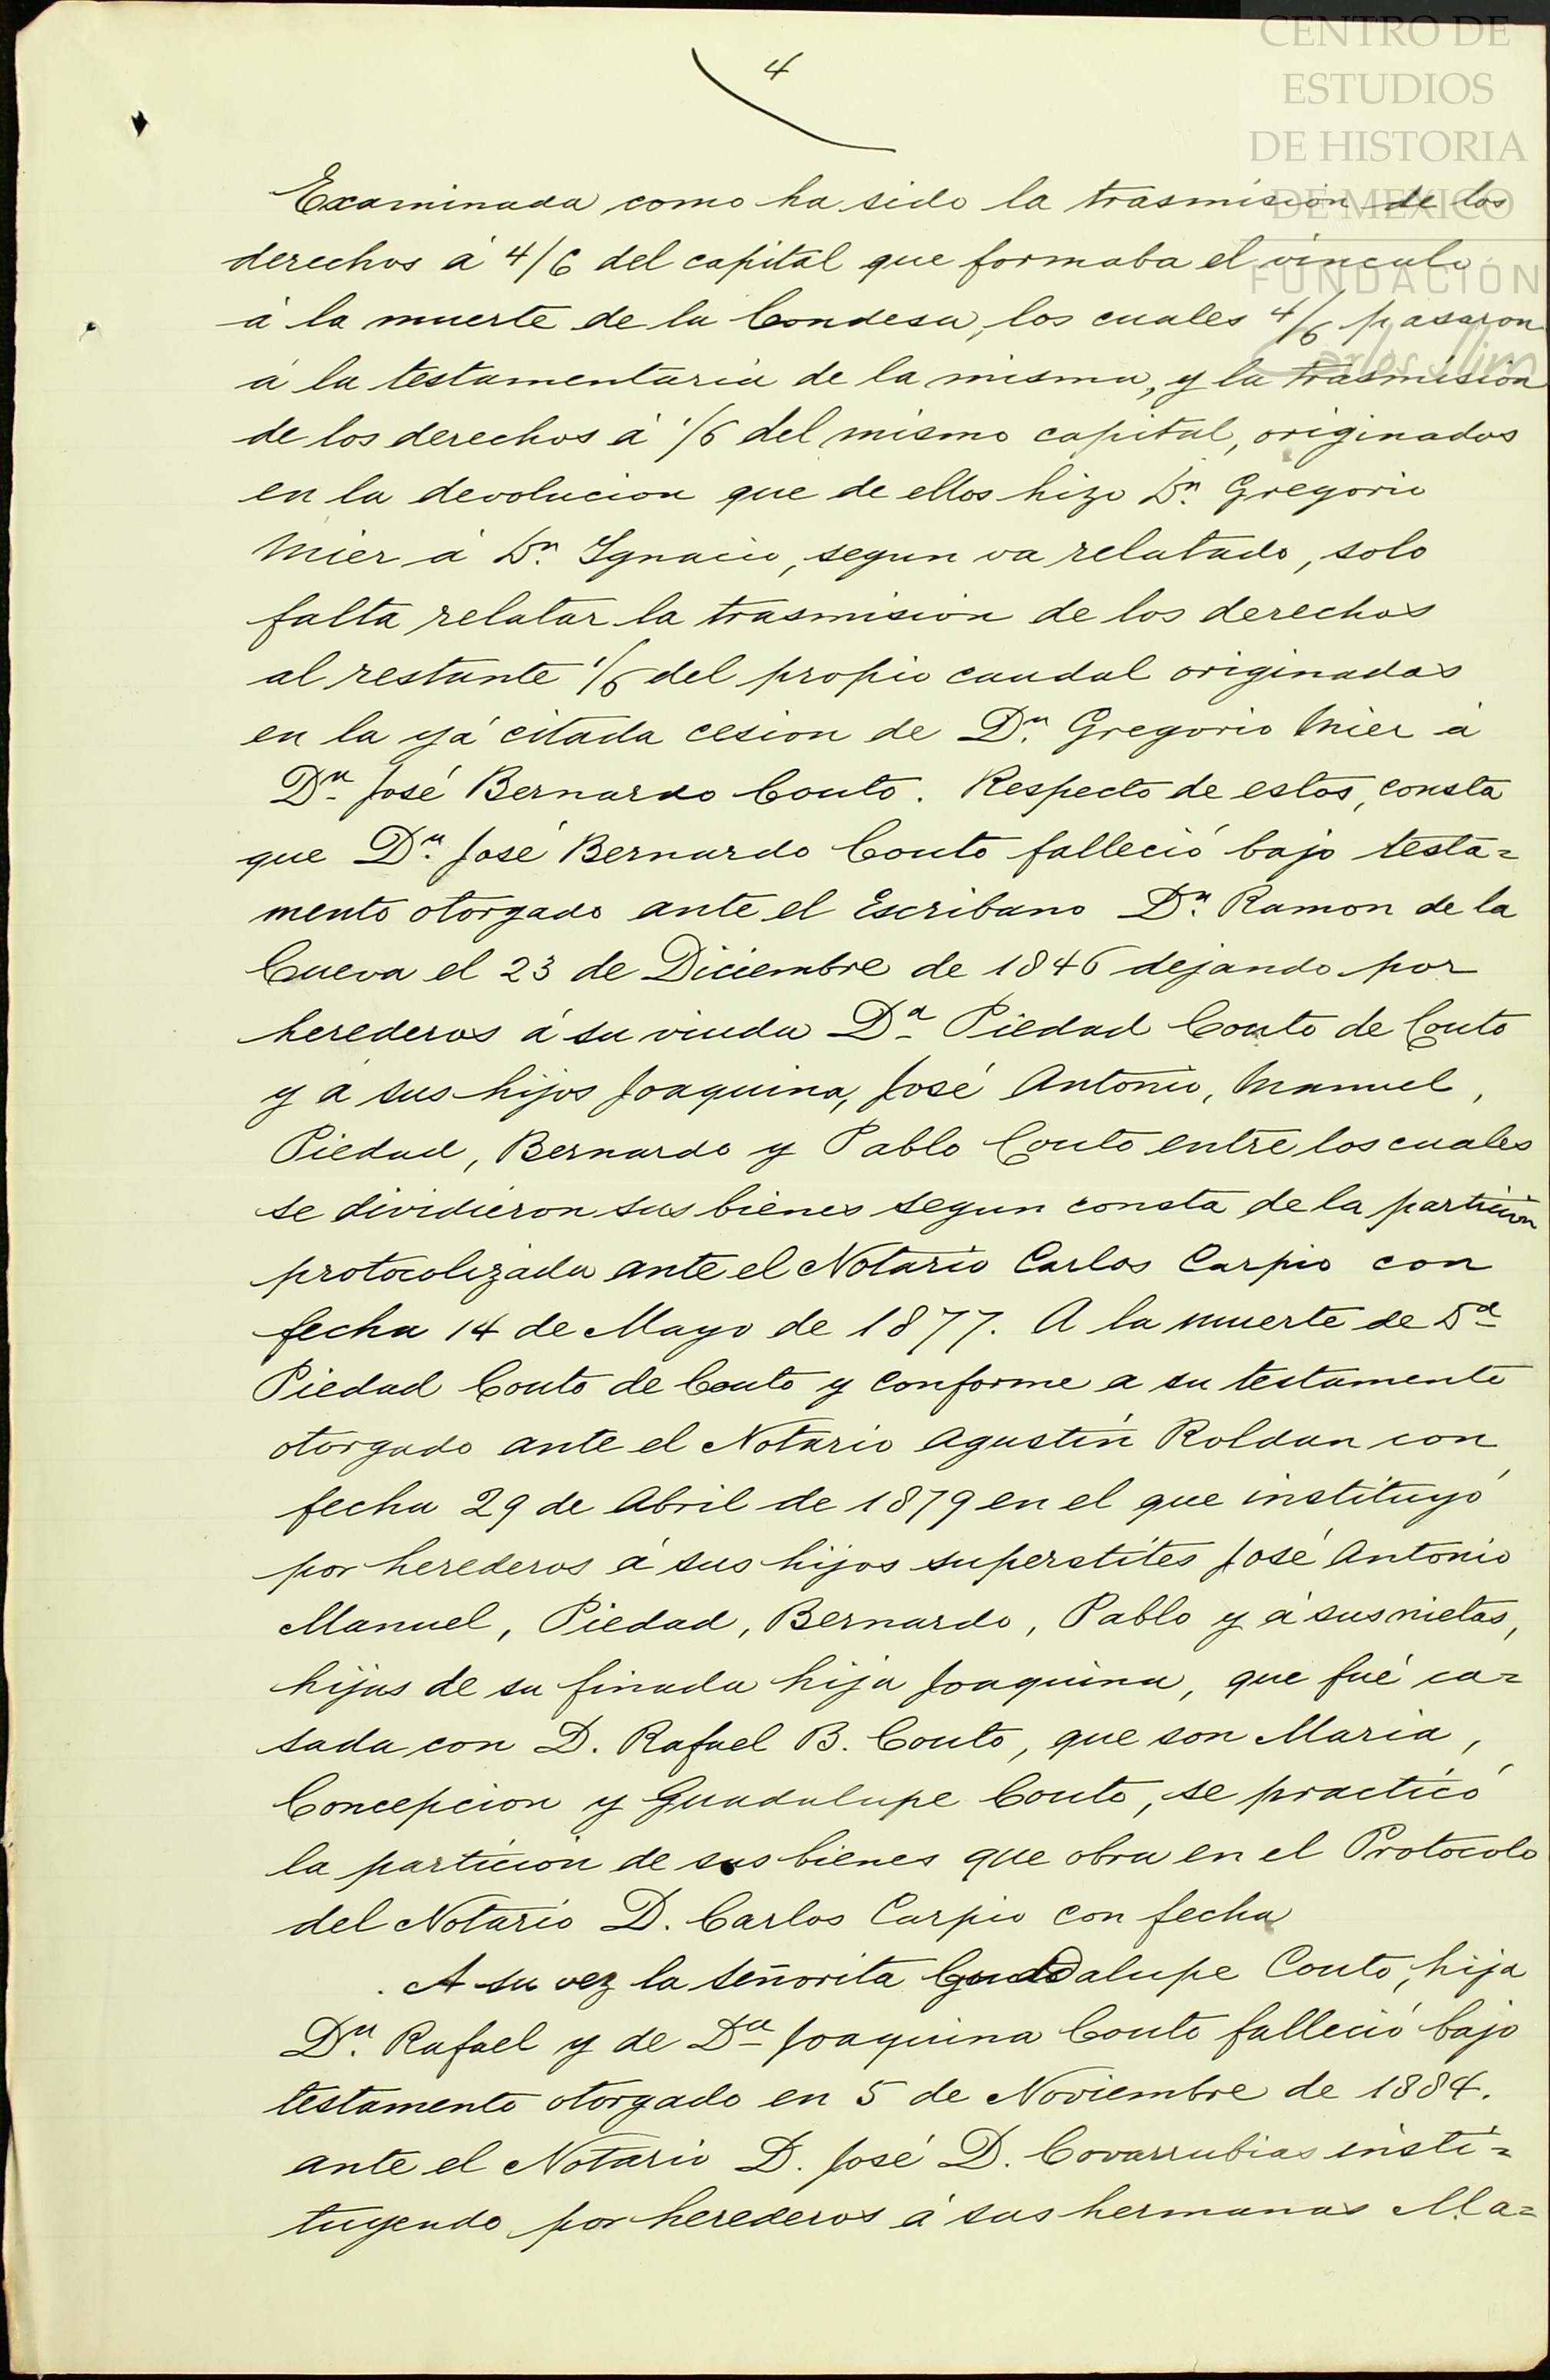 CENTRO DE
ESTUDIOS
DE HISTORIA
DE MEXICO
FUNDACIÓN
Carlos Slim
4
Examinada como ha sido la trasmision de los
derechos á 4/6 del capital que formaba el vínculo
á la muerte de la Condesa, los cuales 4/6 pasaron
á la testamentaría de la misma, y la trasmision
de los derechos á 1/6 del mismo capital, originados
en la devolucion que de ellos hizo Dn. Gregorio
Mier á Dn. Ygnacio, segun va relatado, solo
falta relatar la trasmision de los derechos
al restante 1/6 del propio caudal originados
en la yá citada cesion de Dn. Gregorio Mier á
Dn. José Bernardo Couto. Respecto de estos, consta
que Dn. José Bernardo Couto falleció bajo testa=
mento otorgado ante el Escribano Dn. Ramon de la
Cueva el 23 de Diciembre de 1846 dejando por
herederos á su viuda Da. Piedad Couto de Couto
y á sus hijos Joaquina, José Antonio, Manuel,
Piedad, Bernardo y Pablo Couto entre los cuales
se dividieron sus bienes segun consta de la particion
protocolizada ante el Notario Carlos Carpio con
fecha 14 de Mayo de 1877. A la muerte de Da.
Piedad Couto de Couto y conforme a su testamento
otorgado ante el Notario Agustín Roldan con
fecha 29 de Abril de 1879 en el que instituyó
por herederos á sus hijos superstites José Antonio
Manuel, Piedad, Bernardo, Pablo y á sus nietas,
hijas de su finada hija Joaquina, que fué ca=
sada con D. Rafael B. Couto, que son Maria,
Concepcion y Guadalupe Couto, se practicó
la particion de sus bienes que obra en el Protocolo
del Notario D. Carlos Carpio con fecha
. A su vez la señorita Guadalupe Couto, hija
Dn. Rafael y de Da. Joaquina Couto falleció bajo
testamento otorgado en 5 de Noviembre de 1884.
ante el Notario D. José D. Covarrubias insti=
tuyendo por herederos á sus hermanas Ma=